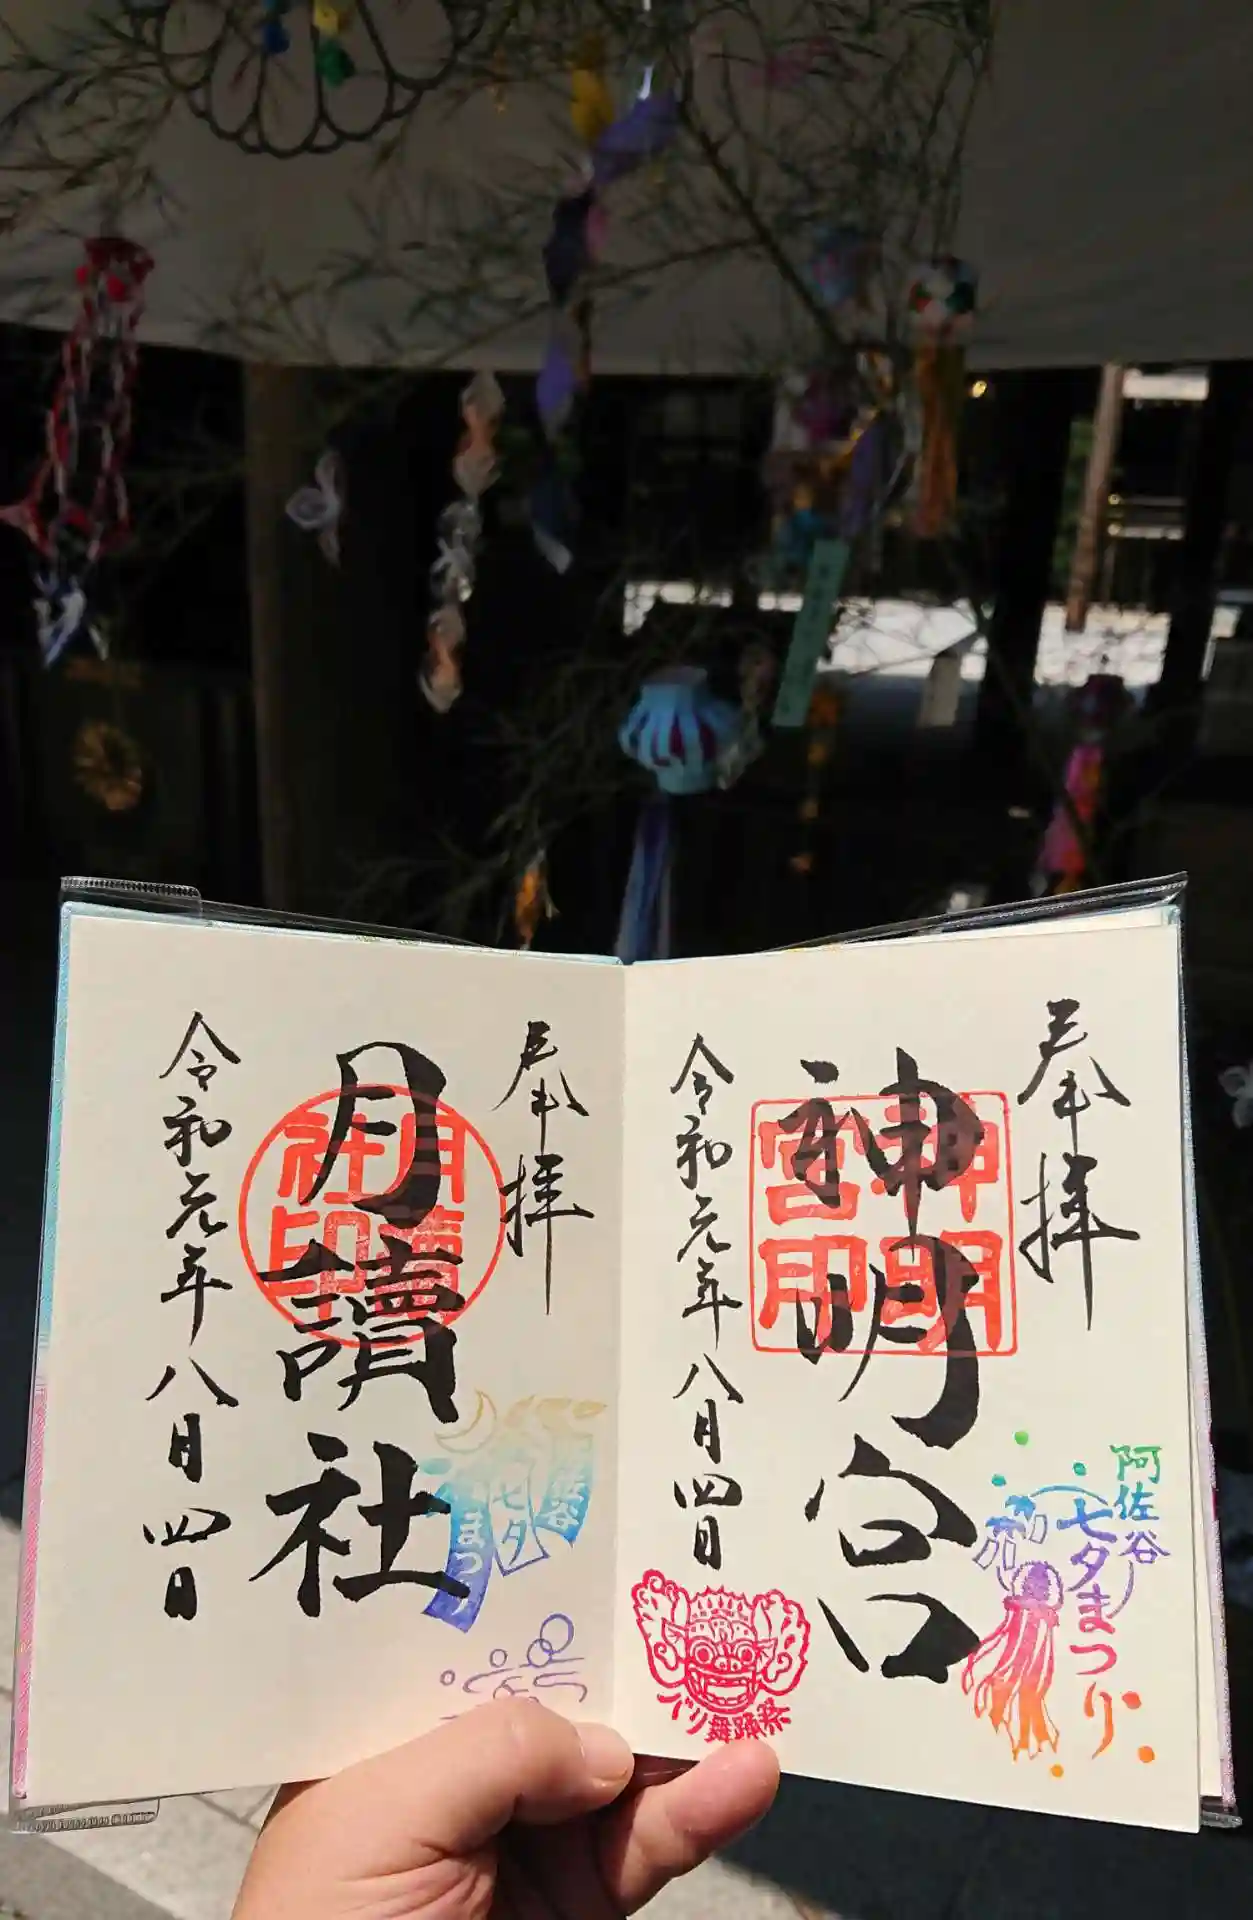 奉拝
神明宮
神明
宮印
令和元年八月四日
阿佐谷
七夕まつり
バリ舞踊祭
奉拝
月讀社
月讀
社印
令和元年八月四日
佐谷
七夕
まつり